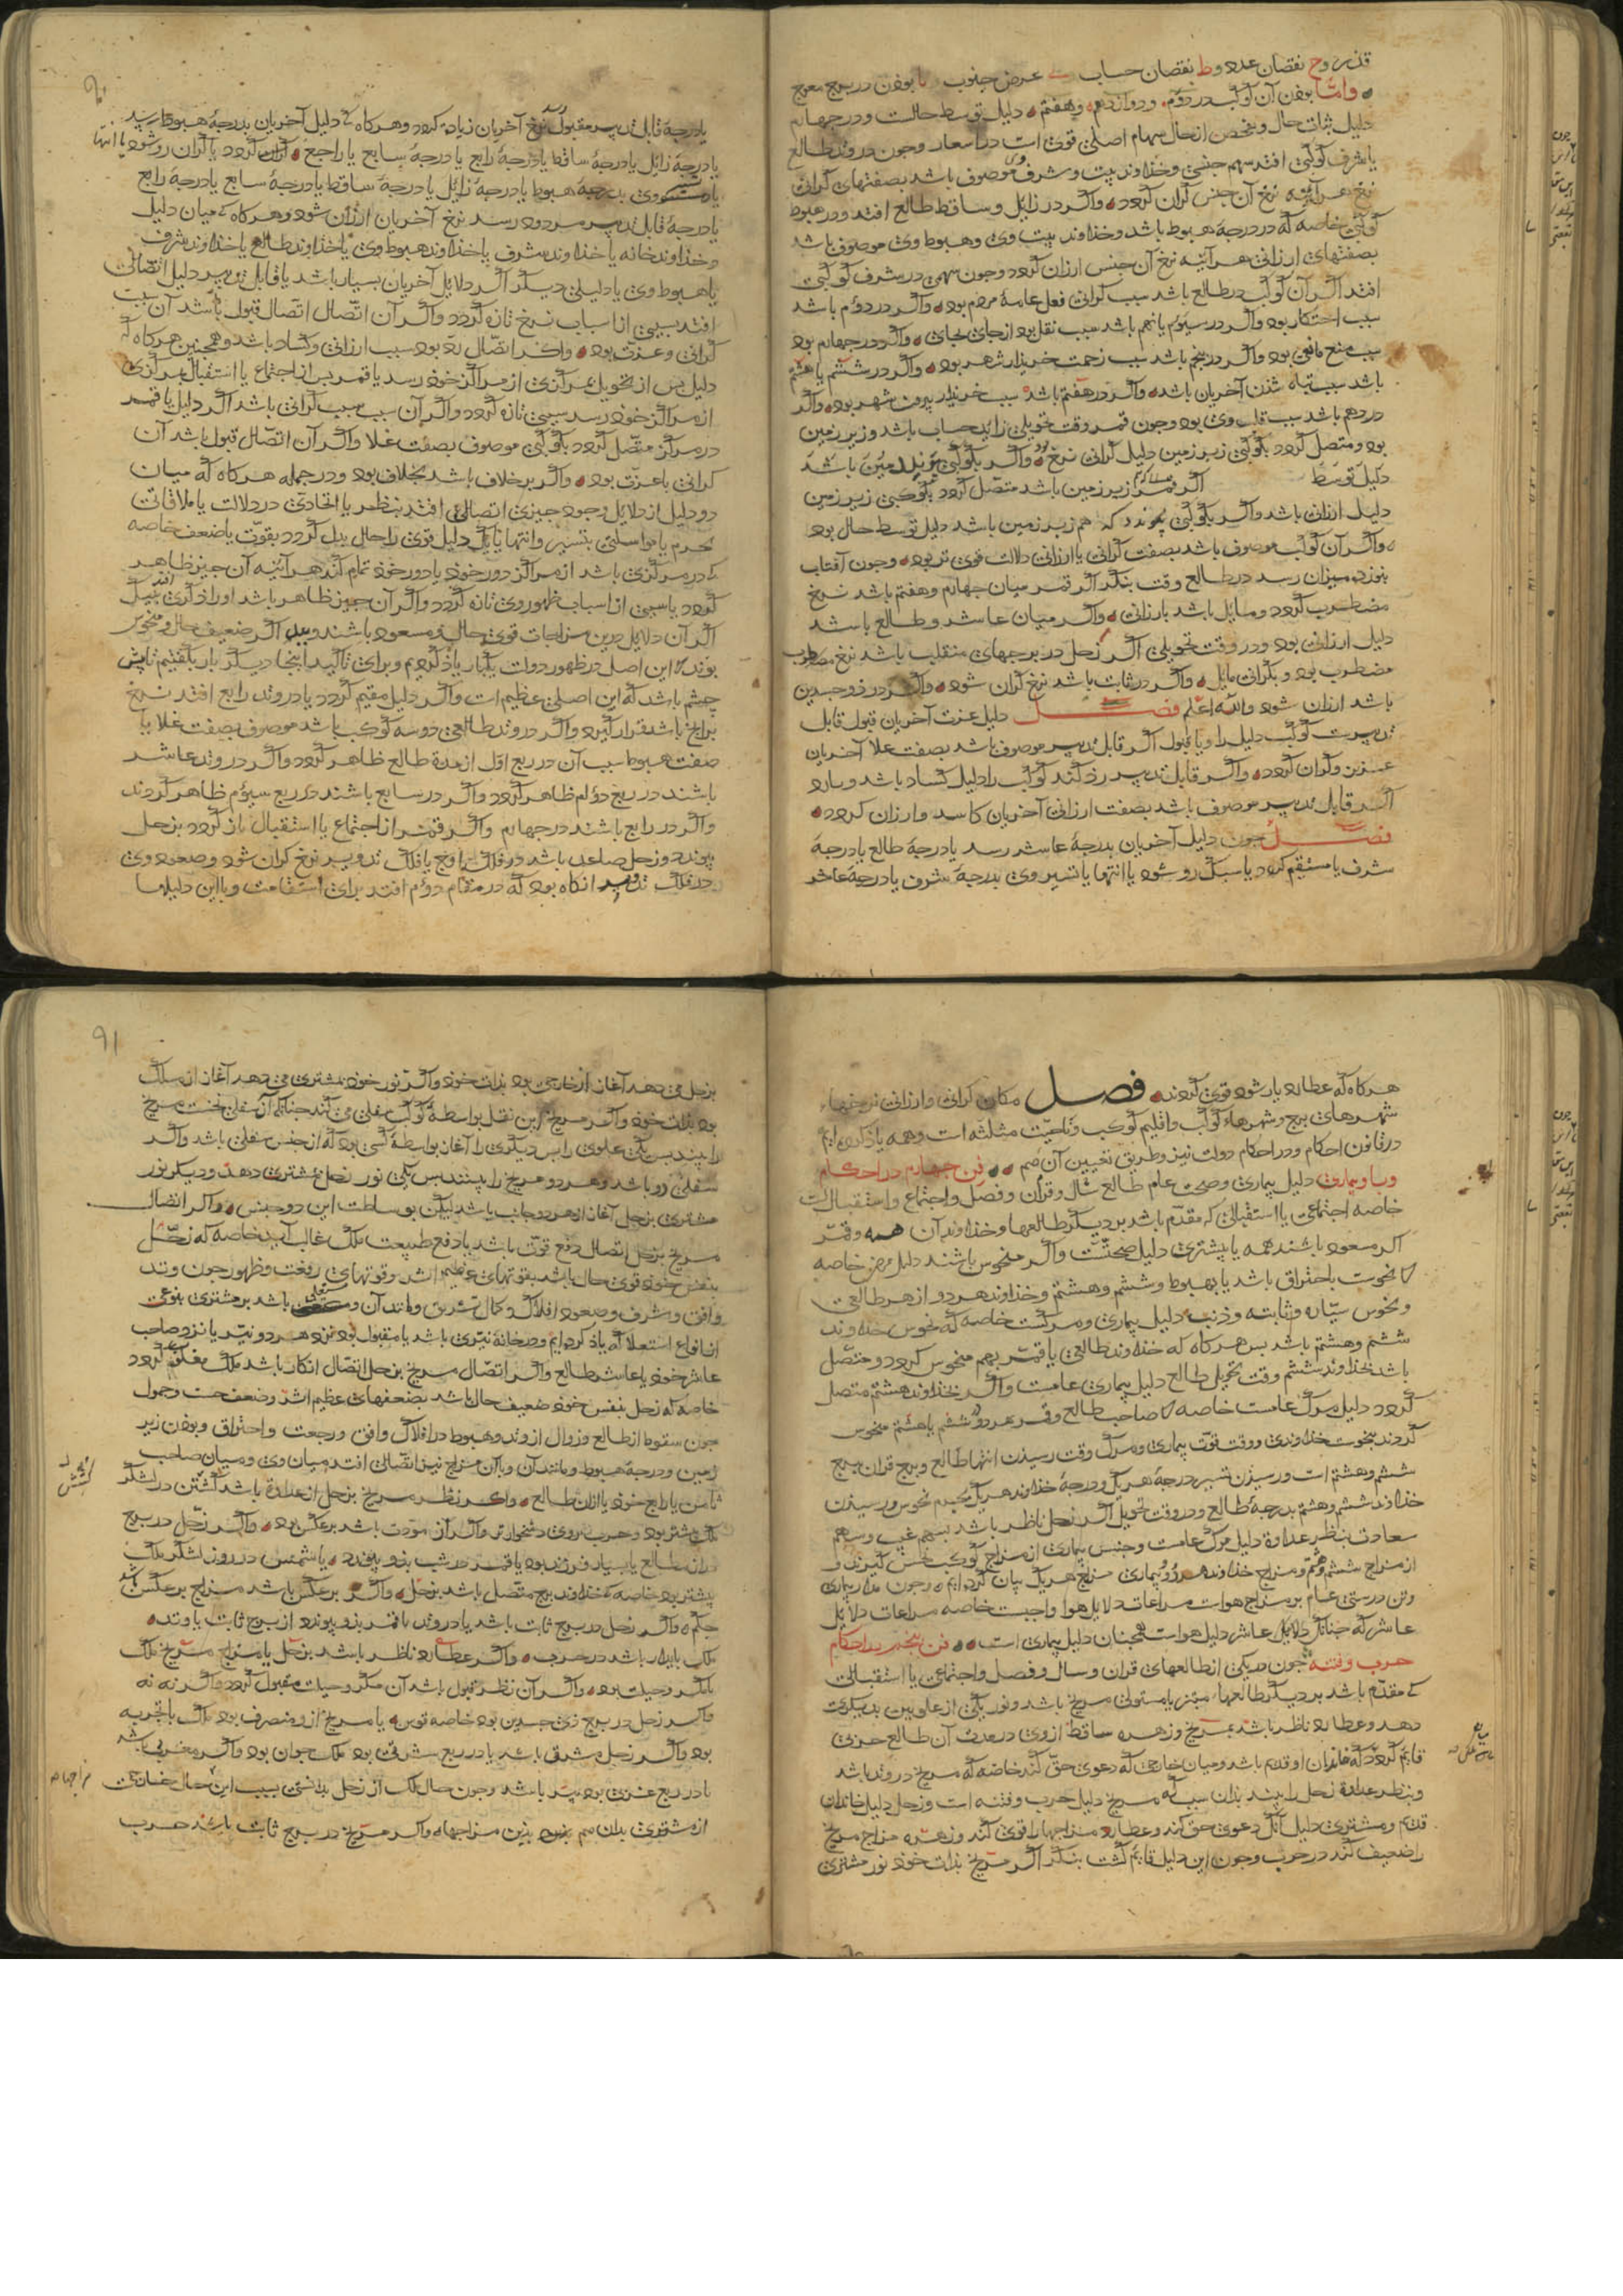 قذر وح نقصان عدد وط نقصان حساب عرض جنوب بوذن در برج معوج
واما بوذن آن کوکب در دوم ودوازدهم وهفتم دلیل توسط حالت ودر چهارم
دلیل ثبات حال وبخصص از حال سهام اصلی قوی است در اسعار وجون در وتد طالع
یا شرف کوکبی افتد سهم جنسی وخداوند بیت وشرف وی موصوف باشد بصفتهای کرانی
نرخ هر آینه نرخ آن جنس کران کردد واکر در زایل وساقط طالع افتد ودر هبوط
کوکبی خاصه که در درجهٔ هبوط باشد وخداوند بیت وی وهبوط وی موصوف باشد
بصفتهای ارزانی هر آینه نرخ آن جنس ارزان کردد وجون سهمی در شرف کوکبی
افتد اکر آن کوکب در طالع باشد سبب کرانی فعل عامهٔ مردم بود واکر در دوم باشد
سبب احتکار بود واکر در سیوم یا نهم باشد سبب نقل بود از جای بجای واکر در چهارم بود
سبب منع مانعی بود واکر در پنجم باشد سبب زحمت خریدار شهر بود واکر در ششم یا هشتم
باشد سبب تباه شذن آخریان باشد واکر در هفتم باشد سبب خریدار بیرون شهر بود واکر
در دهم باشد سبب قلب وی بود وجون قمر وقت تحویل زاید حساب باشد وزیر زمین
بود ومتصل کردد بکوکبی زبر زمین دلیل کرانی نرخ بود واکر بکوکبی زیر زمین باشد
دلیل توسط اکر قمر زبر زمین باشد متصل کردد بکوکبی زیر زمین
دلیل ارزانی باشد واکر بکوکبی پیوندد که هم زبر زمین باشد دلیل توسط حال بود
واکر آن کوکب موصوف باشد بصفت کرانی یا ارزانی دلالت قوی تر بود وجون آفتاب
بنوزده میزان رسد در طالع وقت بنکر اکر قمر میان چهارم وهفتم باشد نرخ
مضطرب کردد ومایل باشد بارزانی واکر میان عاشر وطالع باشد
دلیل ارزانی بود ودر وقت تحویل اکر زحل در برجهای منقلب باشد نرخ مضطرب
مضطرب بود وبکرانی مایل واکر در ثابت باشد نرخ کران شود واکر در ذو جسدین
باشد ارزان شود والله اعلم فصل دلیل عزت آخریان قبول قابل
تدبیرست کوکب دلیل را وبا قبول اکر قابل تدبیر موصوف باشد بصفت غلا آخریان
عزیز وکران کردد واکر قابل تدبیر رد کند کوکب را دلیل کساد باشد وبا رد
اکر قابل تدبیر موصوف باشد بصفت ارزانی آخریان کاسد وارزان کردد
فصل جون دلیل آخریان بدرجهٔ عاشر رسد یا درجهٔ طالع یا درجهٔ
شرف یا مستقیم کردد یا سبک رو شود یا انتها یا تسییر وی بدرجهٔ شرف یا درجهٔ عاشر
یا درجهٔ قابل تدبیر مقبول رسد نرخ آخریان زیاده کردد وهرکاه که دلیل آخریان بدرجهٔ هبوط رسد
یا درجهٔ زایل یا درجهٔ ساقط یا درجهٔ رابع یا درجهٔ سابع یا راجع کران کردد یا کران رو شود یا انتها
یا تسییر وی بدرجهٔ هبوط یا درجهٔ زایل یا درجهٔ ساقط یا درجهٔ سابع یا درجهٔ رابع
یا درجهٔ قابل تدبیر مردود رسد نرخ آخریان ارزان شود وهرکاه که میان دلیل
وخداوند خانه یا خداوند شرف یا خداوند هبوط وی یا خداوند طالع یا خداوند شرف
یا هبوط وی یا دلیلی دیکر اکر دلایل آخریان بسیار باشد یا قابل تدبیر دلیل اتصالی
افتد سببی از اسباب نرخ تازه کردد واکر آن اتصال اتصال قبول باشد آن سبب
کرانی وعزت بود واکر اتصال رد بود سبب ارزانی وکساد باشد وهمچنین هرکاه که
دلیل پس از تحویل بمرکزی از مراکز خوذ رسد یا قمر پس از اجتماع یا استقبال بمرکزی
از مراکز خوذ رسد سببی تازه کردد واکر آن سبب سبب کرانی باشد اکر دلیل یا قمر
در مرکز متصل کردد بکوکبی موصوف بصفت غلا واکر آن اتصال قبول باشد آن
کرانی با عزت بود واکر برخلاف باشد بخلاف بود ودر جمله هرکاه که میان
دو دلیل از دلایل وجود چیزی اتصالی افتد بنظر یا اتحادی در دلالت یا ملاقاتی
بجرم یا مواسلتی بتسییر وانتها یا یک دلیل قوی را حال بدل کردد بقوت یا ضعف خاصه
که در مرکزی باشد از مراکز دور خوذ یا دور خوذ تمام کند هر آینه آن چیز ظاهر
کردد یا سببی از اسباب ظهور وی تازه کردد واکر آن چیز ظاهر باشد او را اثری افتد نیک
اکر آن دلایل درین مزاجات قوی حال ومسعود باشند وبد اکر ضعیف حال ومنحوس
بوند این اصل در ظهور دولت یکبار یاذ کردیم وبرای تاکید اینجا دیکر بار بکفتیم تا پیش
چشم باشد که این اصلی عظیم است واکر دلیل مقیم کردد یا در وتد رابع افتد نرخ
برانج باشد قرار کیرد واکر در وتد طالعی دو سه کوکب باشد موصوف بصفت غلا یا
صفت هبوط سبب آن در ربع اول از مدة طالع ظاهر کردد واکر در وتد عاشر
باشند در ربع دوم ظاهر کردد واکر در سابع باشند در ربع سیوم ظاهر کردند
واکر در رابع باشند در چهارم واکر قمر از اجتماع یا استقبال باز کردد بزحل
پیوندد وزحل صاعد باشد در فلک اوج یا فلک تدویر نرخ کران شود وصعود وی
در فلک تدویر انکاه بود که در مقام دوم افتد برای استقامت وبا این دلیلها
هرکاه که عطارد یار شود قوی کردند فصل مکان کرانی وارزانی نرخهاء
شهرهای برج وشهرهاء کوکب واقلیم کوکب وناحیت مثلثه است وهمه یاذ کرده ایم
در قانون احکام ودر احکام دولت نیز وطریق تعیین آن هم فن چهارم در احکام
وبا وبیماری دلیل بیماری وصحت عام طالع سال وقران وفصل واجتماع واستقبال است
خاصه اجتماعی یا استقبالی که مقدم باشد بر دیکر طالعها وخداوند آن همه وقمر
اکر مسعود باشند همه یا بیشتری دلیل صحتست واکر منحوس باشند دلیل مرض خاصه
که نحوست باحتراق باشد یا بهبوط وششم وهشتم وخداوند هر دو از هر طالعی
ونحوس سیاره وثابته وذنب دلیل بیماری ومرکست خاصه که نحوس خداوند
ششم وهشتم باشد پس هرکاه که خداوند طالعی یا قمر بهم منحوس کردد ومتصل
باشد خداوند ششم وقت تحویل طالع دلیل بیماری عامست واکر خداوند هشتم متصل
کردد دلیل مرک عامست خاصه که صاحب طالع وقمر هر دو ششم یا هشتم منحوس
کردند بنحوست خداوندی ووقت قوت بیماری ومرک وقت رسیدن انتها طالع وبرج قران ببرج
ششم وهشتم است ورسیدن تسییر درجهٔ هر یک ودرجهٔ خداوند هر یک بجرم نحوس ورسیدن
خداوند ششم وهشتم بدرجهٔ طالع ودر وقت تحویل اکر زحل ناظر باشد بسهم غیب وسهم
سعادت بنظر عداوة دلیل مرک عامست وجنس بیماری از مزاج کوکب نحس کیرند و
از مزاج ششم وهشتم ومزاج خداوند هر دو وبیماری مزاج هر یک بیان کرده ایم وجون مدار بیماری
وتن درستی عام بر مزاج هواست مراعات دلایل هوا واجبست خاصه مراعات دلایل
عاشر که چنانک دلایل عاشر دلیل هواست همچنان دلیل بیماری است فن پنجم در احکام
حرب وفتنه جون در یکی از طالعهای قران وسال وفصل واجتماعی یا استقبالی
که مقدم باشد بر دیکر طالعها مبتز یا مستولی مریخ باشد ونور یکی از علویین بدیکری
دهد وعطارد ناظر باشد بمریخ وزهره ساقط از وی در مدت آن طالع حربی
قایم کردد که خاندان او قدیم باشد ومیان خارجی که دعوی حق کند خاصه که مریخ در وتد باشد
وبنظر عداوة زحل را بیند بدان سبب که مریخ دلیل حرب وفتنه است وزحل دلیل خاندان
قدیم ومشتری دلیل آنک دعوی حق کند وعطارد مزاجها را قوی کند وزهره مزاج مریخ
را ضعیف کند در حرب وجون این دلیل قایم کشت بنکر اکر مریخ بذات خوذ نور مشتری
91
بزحل می دهد آغاز از خارجی بود بذات خوذ واکر نور خوذ بمشتری می دهد آغاز از ملک
بود بذات خوذ واکر مریخ این نقل بواسطهٔ کوکب سفلی می کند چنانک آن سفلی نخست مریخ
را بیند پس یکی علوی را پس دیکری را آغاز بواسطهٔ کسی بود که از جنس سفلی باشد واکر
سفلی دو باشد وهر دو مریخ را بینند پس یکی نور زحل بمشتری دهد ودیکر نور
مشتری بزحل آغاز از هر دو جانب باشد لیکن بوساطت این دو جنس واکر اتصال
مریخ بزحل اتصال دفع قوت باشد یا دفع طبیعت ملک غالب آید خاصه که زحل
بنفس خوذ قوی حال باشد بقوتهای عظیم اثر وقوتهای رفعت وظهور جون وتد
وافق وشرف وصعود افلاک وکمال تشریق ومانند آن ومستعلی باشد بر مشتری بنوعی
از انواع استعلا که یاذ کرده ایم ودر خانهٔ نیری باشد یا مقبول بود نزد هر دو نیر یا نزد صاحب
عاشر خوذ یا عاشر طالع واکر اتصال مریخ بزحل اتصال انکار باشد ملک مغلوب کردد
خاصه که زحل بنفس خوذ ضعیف حال باشد بضعفهای عظیم اثر وضعف خست وخمول
جون سقوط از طالع وزوال از وتد وهبوط در افلاک وافق ورجعت واحتراق وبوذن زیر
زمین ودرجهٔ هبوط ومانند آن وبا آن مزاج نیز اتصالی افتد میان وی ومیان صاحب
ثامن یا رابع خوذ یا از ان طالع واکر نظر مریخ بزحل از عداوة باشد کشتن در لشکر
ملک بیشتر بود وحرب بروی دشخوارتر واکر از مودت باشد برعکس بود واکر زحل در برج
پیشتر بود خاصه که خداوند برج متصل باشد بزحل واکر برعکس باشد مزاج برعکس باشد
حکم واکر زحل در برج ثابت باشد یا در وتد یا قمر بدو پیوندد از برج ثابت یا وتد
ملک پایدار باشد در حرب واکر عطارد ناظر باشد بزحل یا بمزاج مریخ ملک
با مکر وحیلت بود واکر آن نظر قبول باشد آن مکر وحیلت مقبول کردد واکر نه نه
واکر زحل در برج ذی جسدین بود خاصه قوس یا مریخ ازو منصرف بود ملک با تجربه
بود واکر زحل مشرق باشد یا در ربع شرقی بود ملک جوان بود واکر مغربی باشد
یا در ربع غربی بود پیر باشد وجون حال ملک از زحل بدانستی
از مشتری بدان هم بدین مزاجها واکر مریخ در برج ثابت باشد حرب